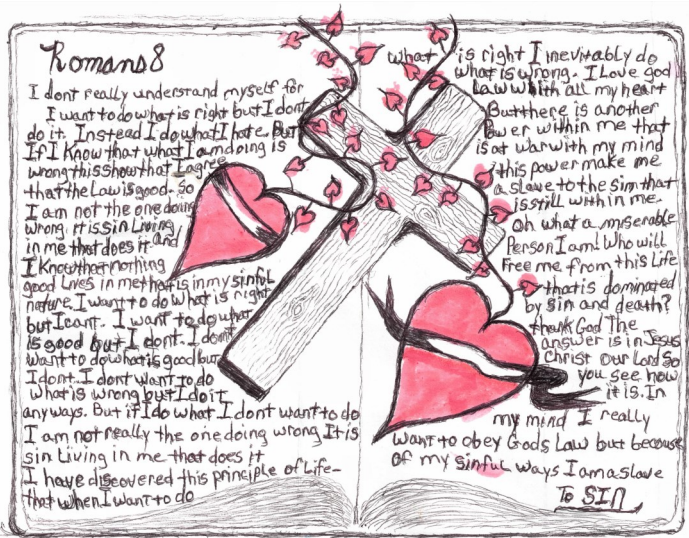 Romans 8
I dont really understand myself for
I want to do what is right but I dont
do it. Instead I do what I hate. But
If I know that what I am doing is
wrong this show that I agree
that the Law is good. So
I am not the one doing
wrong. it is sin Living
in me that does it and
I Know that nothing
good Lives in me that is in my sinful
nature. I want to do what is right
but I cant. I want to do what
is good but I dont. I dont
want to do what is good but
I dont. I dont want to do
what is wrong but I do it
anyways. But if I do what I dont want to do
I am not really the one doing wrong It is
sin Living in me that does it
I have discovered this principle of Life-
that when I want to do
what is right I inevitably do
what is wrong. I Love god
Law with all my heart
But there is another
Power within me that
is at war with my mind
this power make me
a slave to the sin that
is still within me.
Oh what a miserable
Person I am! Who will
Free me from this Life
that is dominated
by sin and death?
thank God The
answer is in Jesus
Christ our Lord So
you see how
it is. In
my mind I really
want to obey Gods Law but because
of my sinful ways I am a slave
To SIN